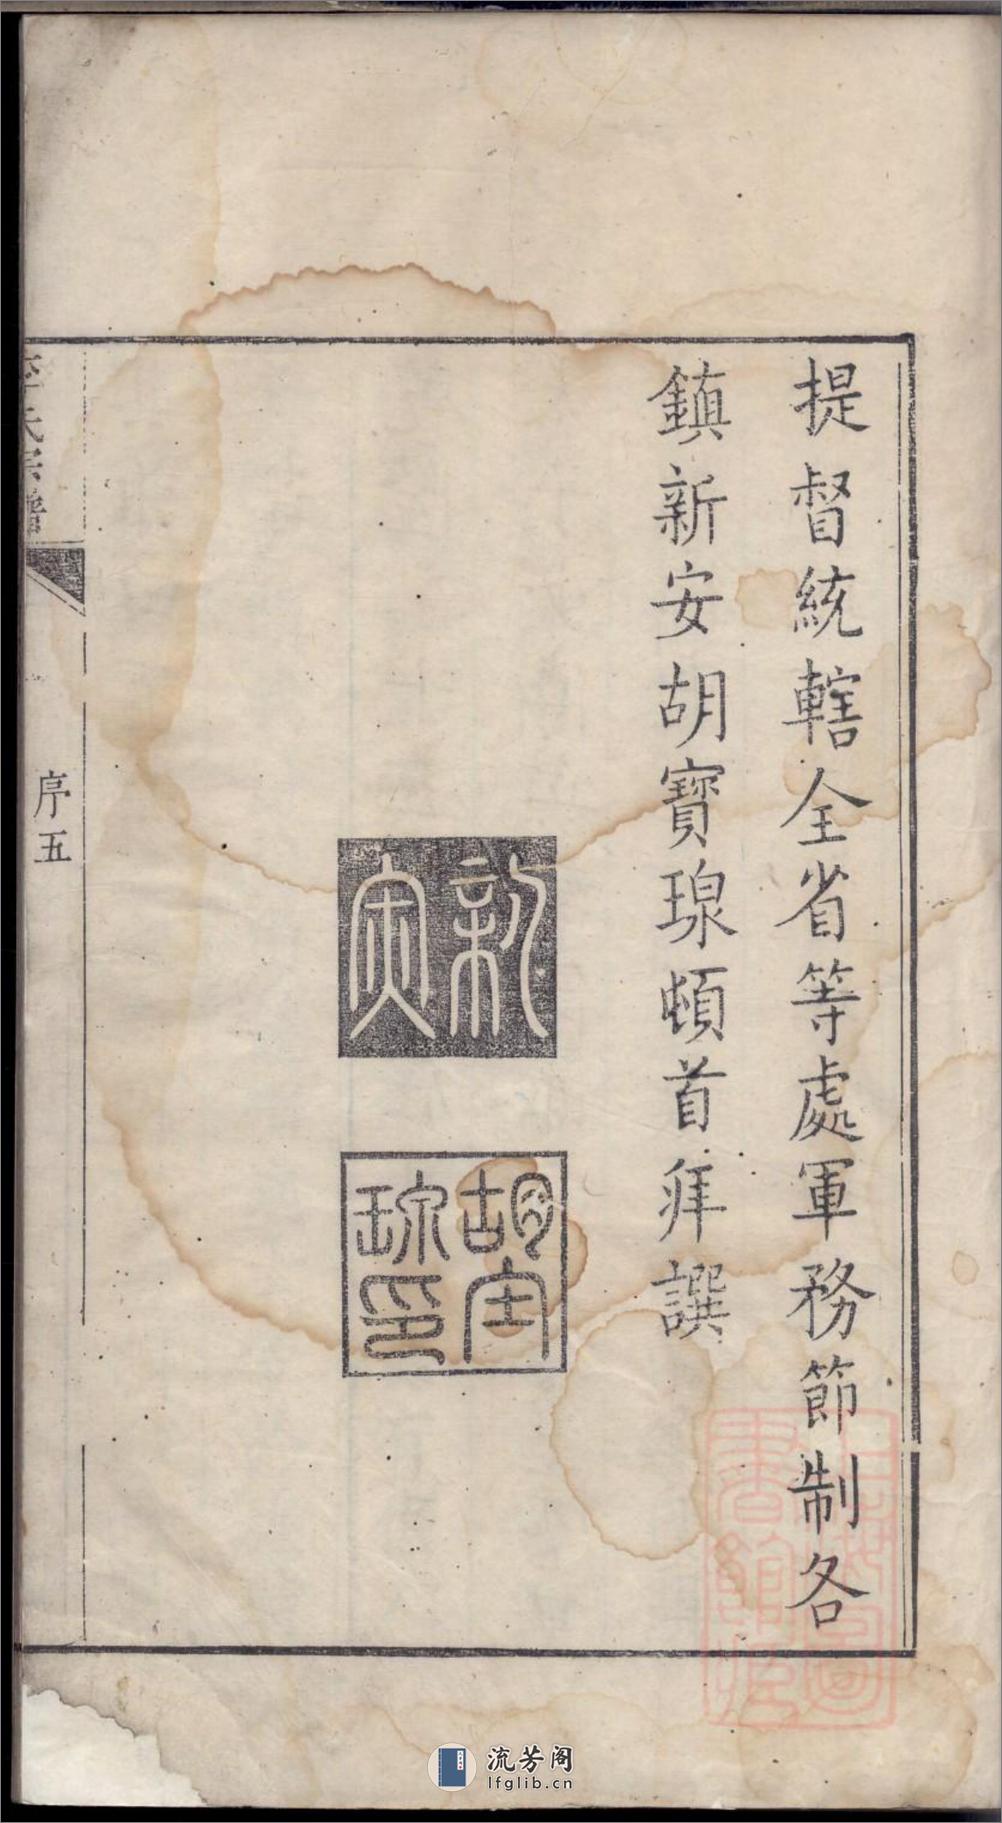 提督統轄全省等處軍務節制各
鎮新安胡寶瑔頓首拜譔
胡宝
瑔印
氏宗譜
序五
流芳阁
lfglib.cn